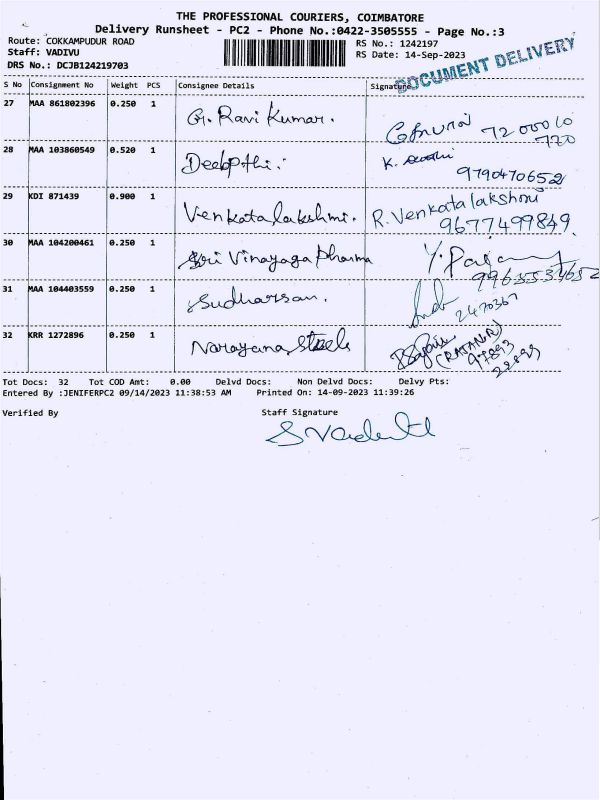 THE PROFESSIONAL COURIERS, COIMBATORE
Delivery Runsheet - PC2 - Phone No.:0422-3505555 - Page No.:3
Route: COKKAMPUDUR ROAD
Staff: VADIVU
DRS No.: DCJB124219703
RS No.: 1242197
RS Date: 14-Sep-2023
DOCUMENT DELIVERY
S No Consignment No Weight PCS Consignee Details Signature
27 MAA 861802396 0.250 1 G. Ravi Kumar. 72 000 60 720
28 MAA 103860549 0.520 1 Deepthi. K. 9790470652
29 KDI 871439 0.900 1 Venkatalakshmi. R. Venkatalakshmi 9677499849
30 MAA 104200461 0.250 1 Sri Vinayaga Pharma
31 MAA 104403559 0.250 1 Sudharsan. 2470367
32 KRR 1272896 0.250 1 Narayana Steels (RATAN.R) 97893
Tot Docs: 32 Tot COD Amt: 0.00 Delvd Docs: Non Delvd Docs: Delvy Pts:
Entered By :JENIFERPC2 09/14/2023 11:38:53 AM Printed On: 14-09-2023 11:39:26
Verified By Staff Signature